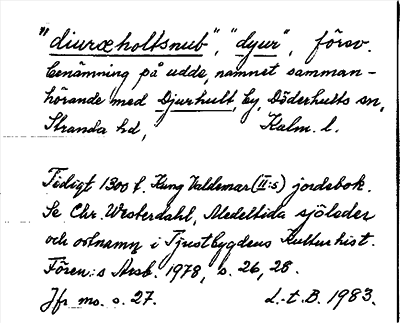 "diuræholtsnub", "dyur", försv.
benämning på udde, namnet samman-
hörande med Djurhult, by, Döderhults sn,
Stranda hd, Kalm. l.
Tidigt 1300 t. Kung Valdemar (II:s) jordebok.
Se Chr. Westerdahl, Medeltida sjöleder
och ortnamn i Tjustbygdens Kulturhist.
Fören:s Årsb. 1978, s. 26, 28.
Jfr ms. s. 27. L.-t. B. 1983.